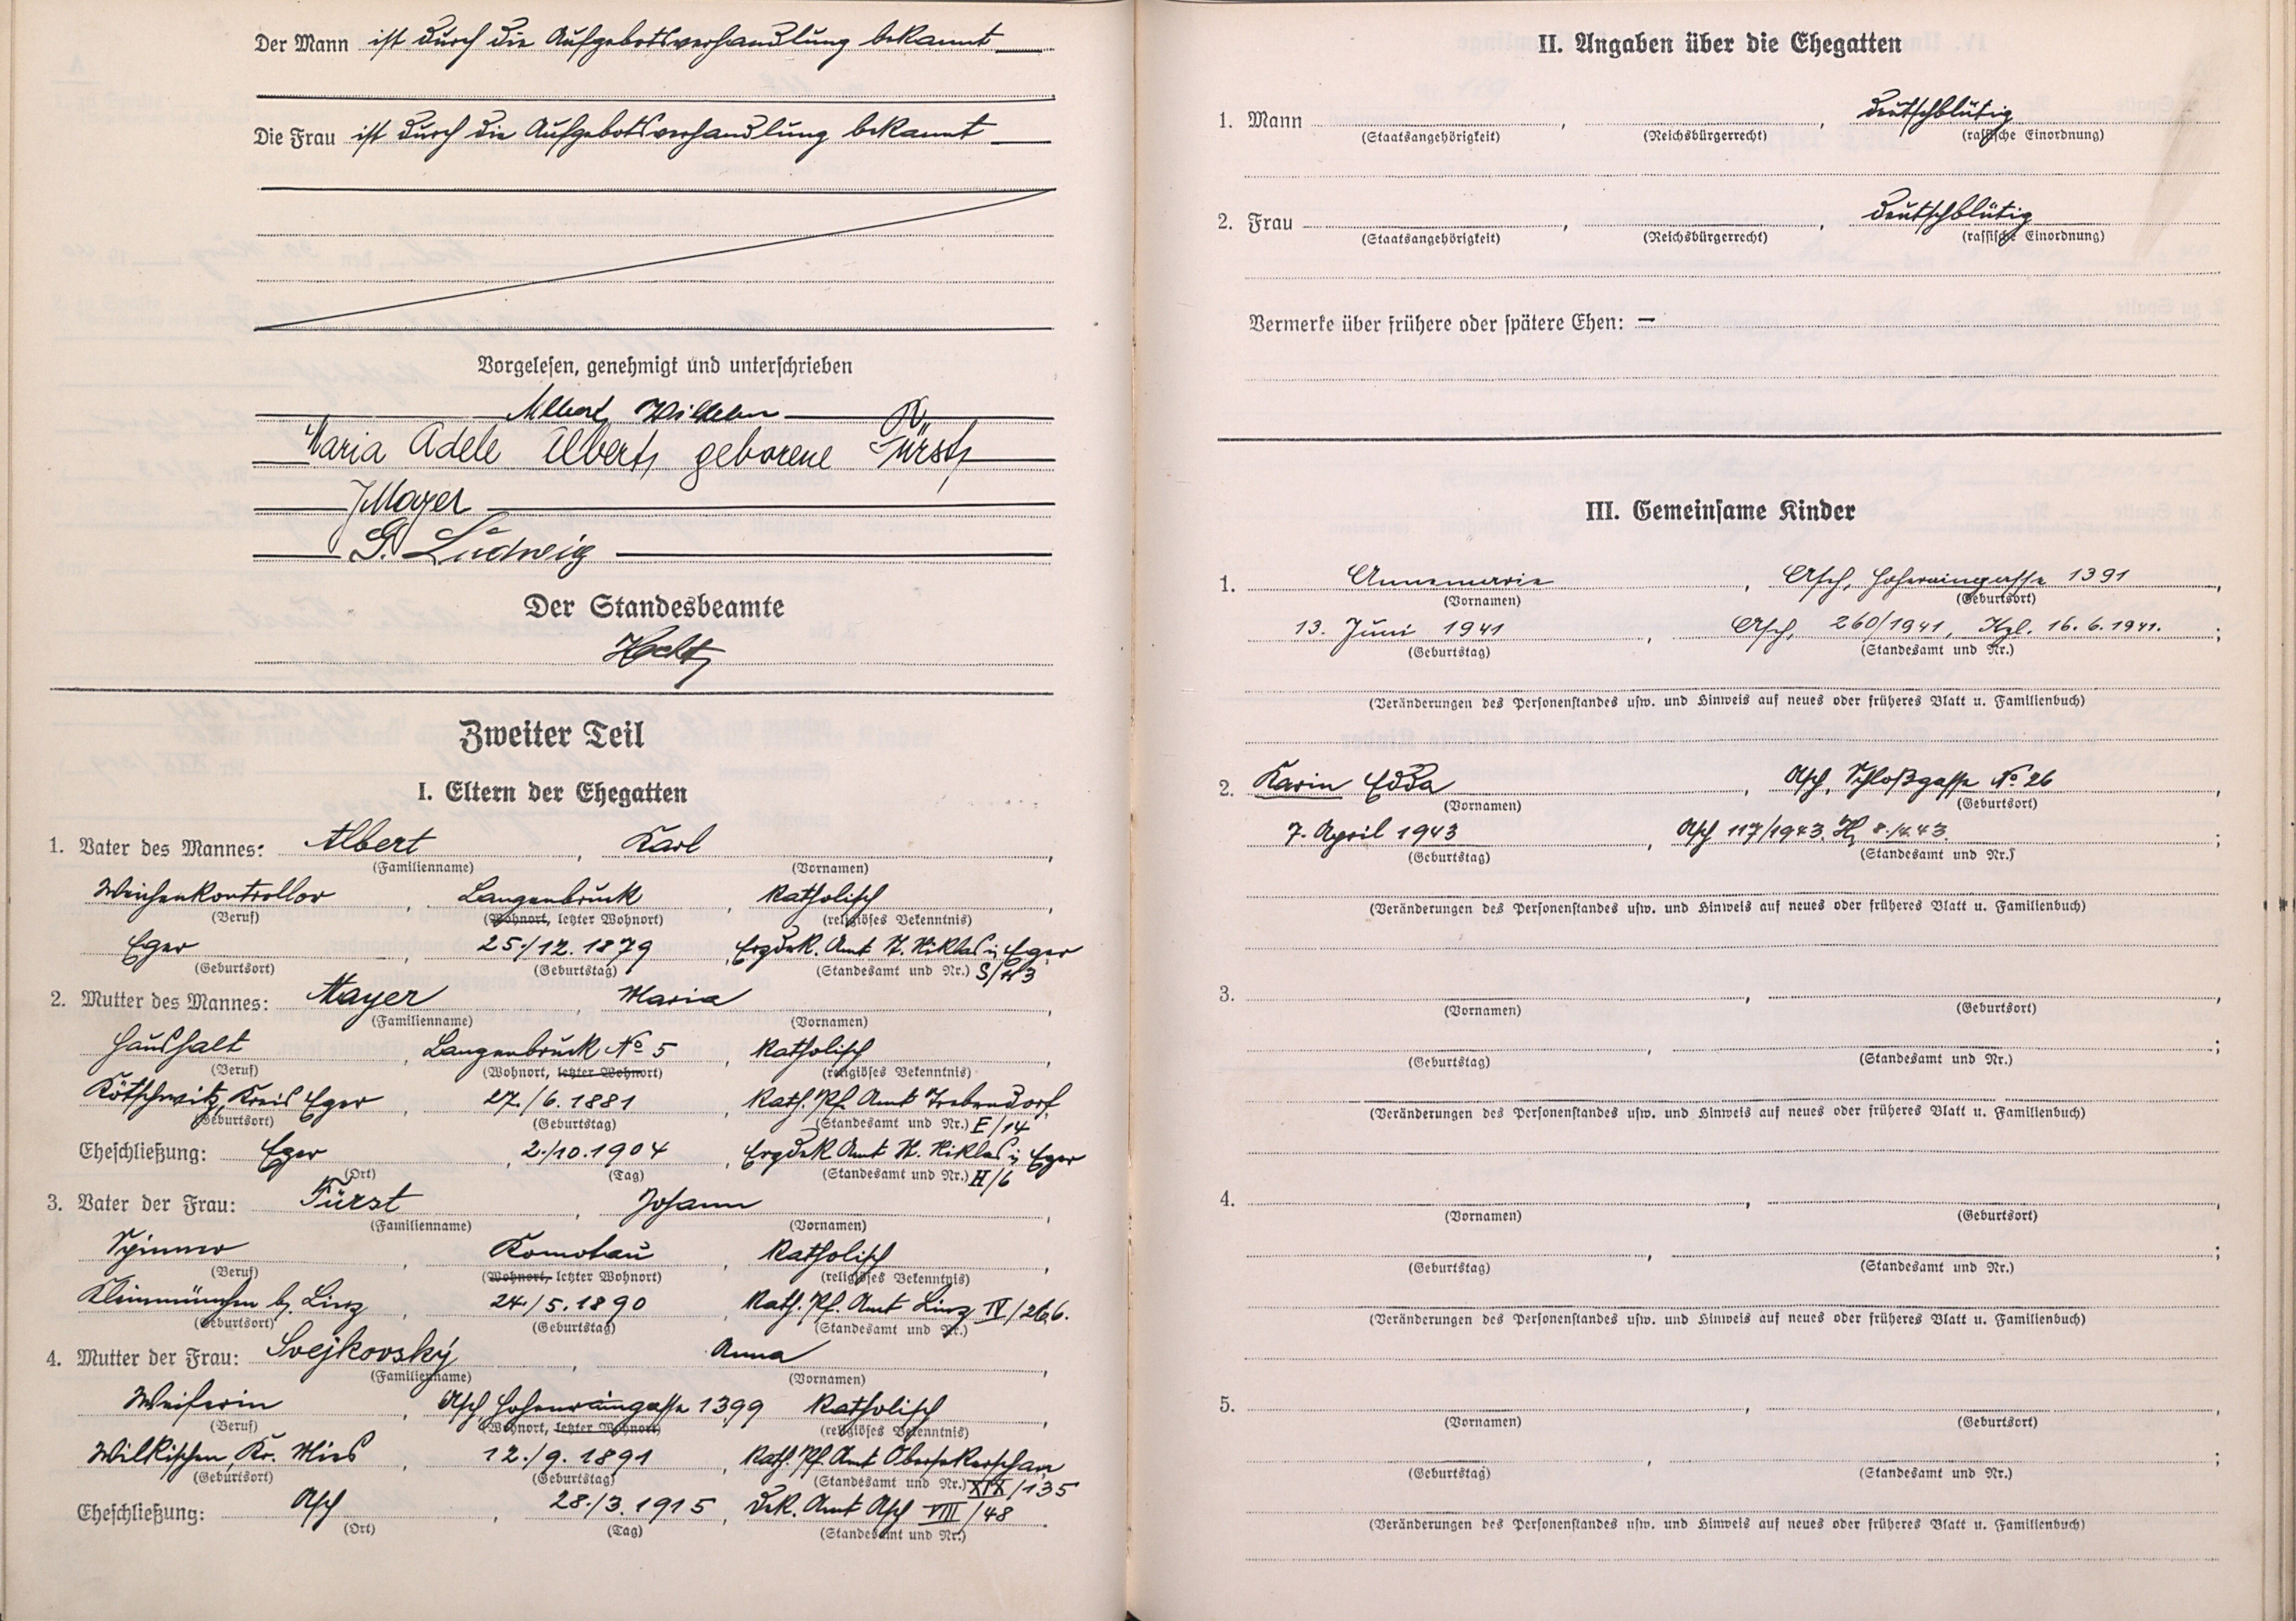 Der Mann ist durch die Aufgebotsverhandlung bekannt
Die Frau ist durch die Aufgebotsverhandlung bekannt
Vorgelesen, genehmigt und unterschrieben
Albert Wilhelm
Maria Adele Albert, geborene Fürst
JMayer
G. Ludwig
Der Standesbeamte
Zweiter Teil
I. Eltern der Ehegatten
1. Vater des Mannes: Albert, Karl,
(Familienname) (Vornamen)
Weichenkontrollor, Langenbruck, katholisch,
(Beruf) (Wohnort, letzter Wohnort) (religiöses Bekenntnis)
Eger, 25./12.1879, Erzdek. Amt St. Niklas i Eger
(Geburtsort) (Geburtstag) (Standesamt und Nr.) S/43
2. Mutter des Mannes: Mayer, Maria,
(Familienname) (Vornamen)
Haushalt, Langenbruck No 5, katholisch,
(Beruf) (Wohnort, letzter Wohnort) (religiöses Bekenntnis)
Kötschwitz, Kreis Eger, 27./6.1881, Kath. Pf. Amt Trebendorf,
(Geburtsort) (Geburtstag) (Standesamt und Nr.) E/14
Eheschließung: Eger, 2./10.1904, Erzdek Amt St. Niklas i Eger
(Ort) (Tag) (Standesamt und Nr.) H/6
3. Vater der Frau: Fürst, Johann,
(Familienname) (Vornamen)
Spinner, Komotau, katholisch,
(Beruf) (Wohnort, letzter Wohnort) (religiöses Bekenntnis)
Kleinmünchen b. Linz, 24./5.1890, Kath. Pf. Amt Linz IV/266.
(Geburtsort) (Geburtstag) (Standesamt und Nr.)
4. Mutter der Frau: Svejkovský, Anna,
(Familienname) (Vornamen)
Weiferin, Asch Hohenraingasse 1399 katholisch,
(Beruf) (Wohnort, letzter Wohnort) (religiöses Bekenntnis)
Wilkischen, Kr. Mies, 12./9.1891, Kath. Pf. Amt
(Geburtsort) (Geburtstag) (Standesamt und Nr.) XIX/135
Eheschließung: Asch, 28./3.1915, Dek. Amt Asch VIII/48
(Ort) (Tag) (Standesamt und Nr.)
II. Angaben über die Ehegatten
1. Mann , , deutschblütig
(Staatsangehörigkeit) (Reichsbürgerrecht) (rassische Einordnung)
2. Frau , , deutschblütig
(Staatsangehörigkeit) (Reichsbürgerrecht) (rassische Einordnung)
Vermerke über frühere oder spätere Ehen: —
III. Gemeinsame Kinder
1. Annemarie, Asch, Hoheraingasse 1391,
(Vornamen) (Geburtsort)
13. Juni 1941, Asch, 260/1941, Kzl. 16.6.1941.;
(Geburtstag) (Standesamt und Nr.)
(Veränderungen des Personenstandes usw. und Hinweis auf neues oder früheres Blatt u. Familienbuch)
2. Karin Edda, Asch, Schloßgasse No 26,
(Vornamen) (Geburtsort)
7. April 1943, Asch 117/1943. 8./4.43.;
(Geburtstag) (Standesamt und Nr.)
(Veränderungen des Personenstandes usw. und Hinweis auf neues oder früheres Blatt u. Familienbuch)
3. , ,
(Vornamen) (Geburtsort)
, ;
(Geburtstag) (Standesamt und Nr.)
(Veränderungen des Personenstandes usw. und Hinweis auf neues oder früheres Blatt u. Familienbuch)
4. , ,
(Vornamen) (Geburtsort)
, ;
(Geburtstag) (Standesamt und Nr.)
(Veränderungen des Personenstandes usw. und Hinweis auf neues oder früheres Blatt u. Familienbuch)
5. , ,
(Vornamen) (Geburtsort)
, ;
(Geburtstag) (Standesamt und Nr.)
(Veränderungen des Personenstandes usw. und Hinweis auf neues oder früheres Blatt u. Familienbuch)